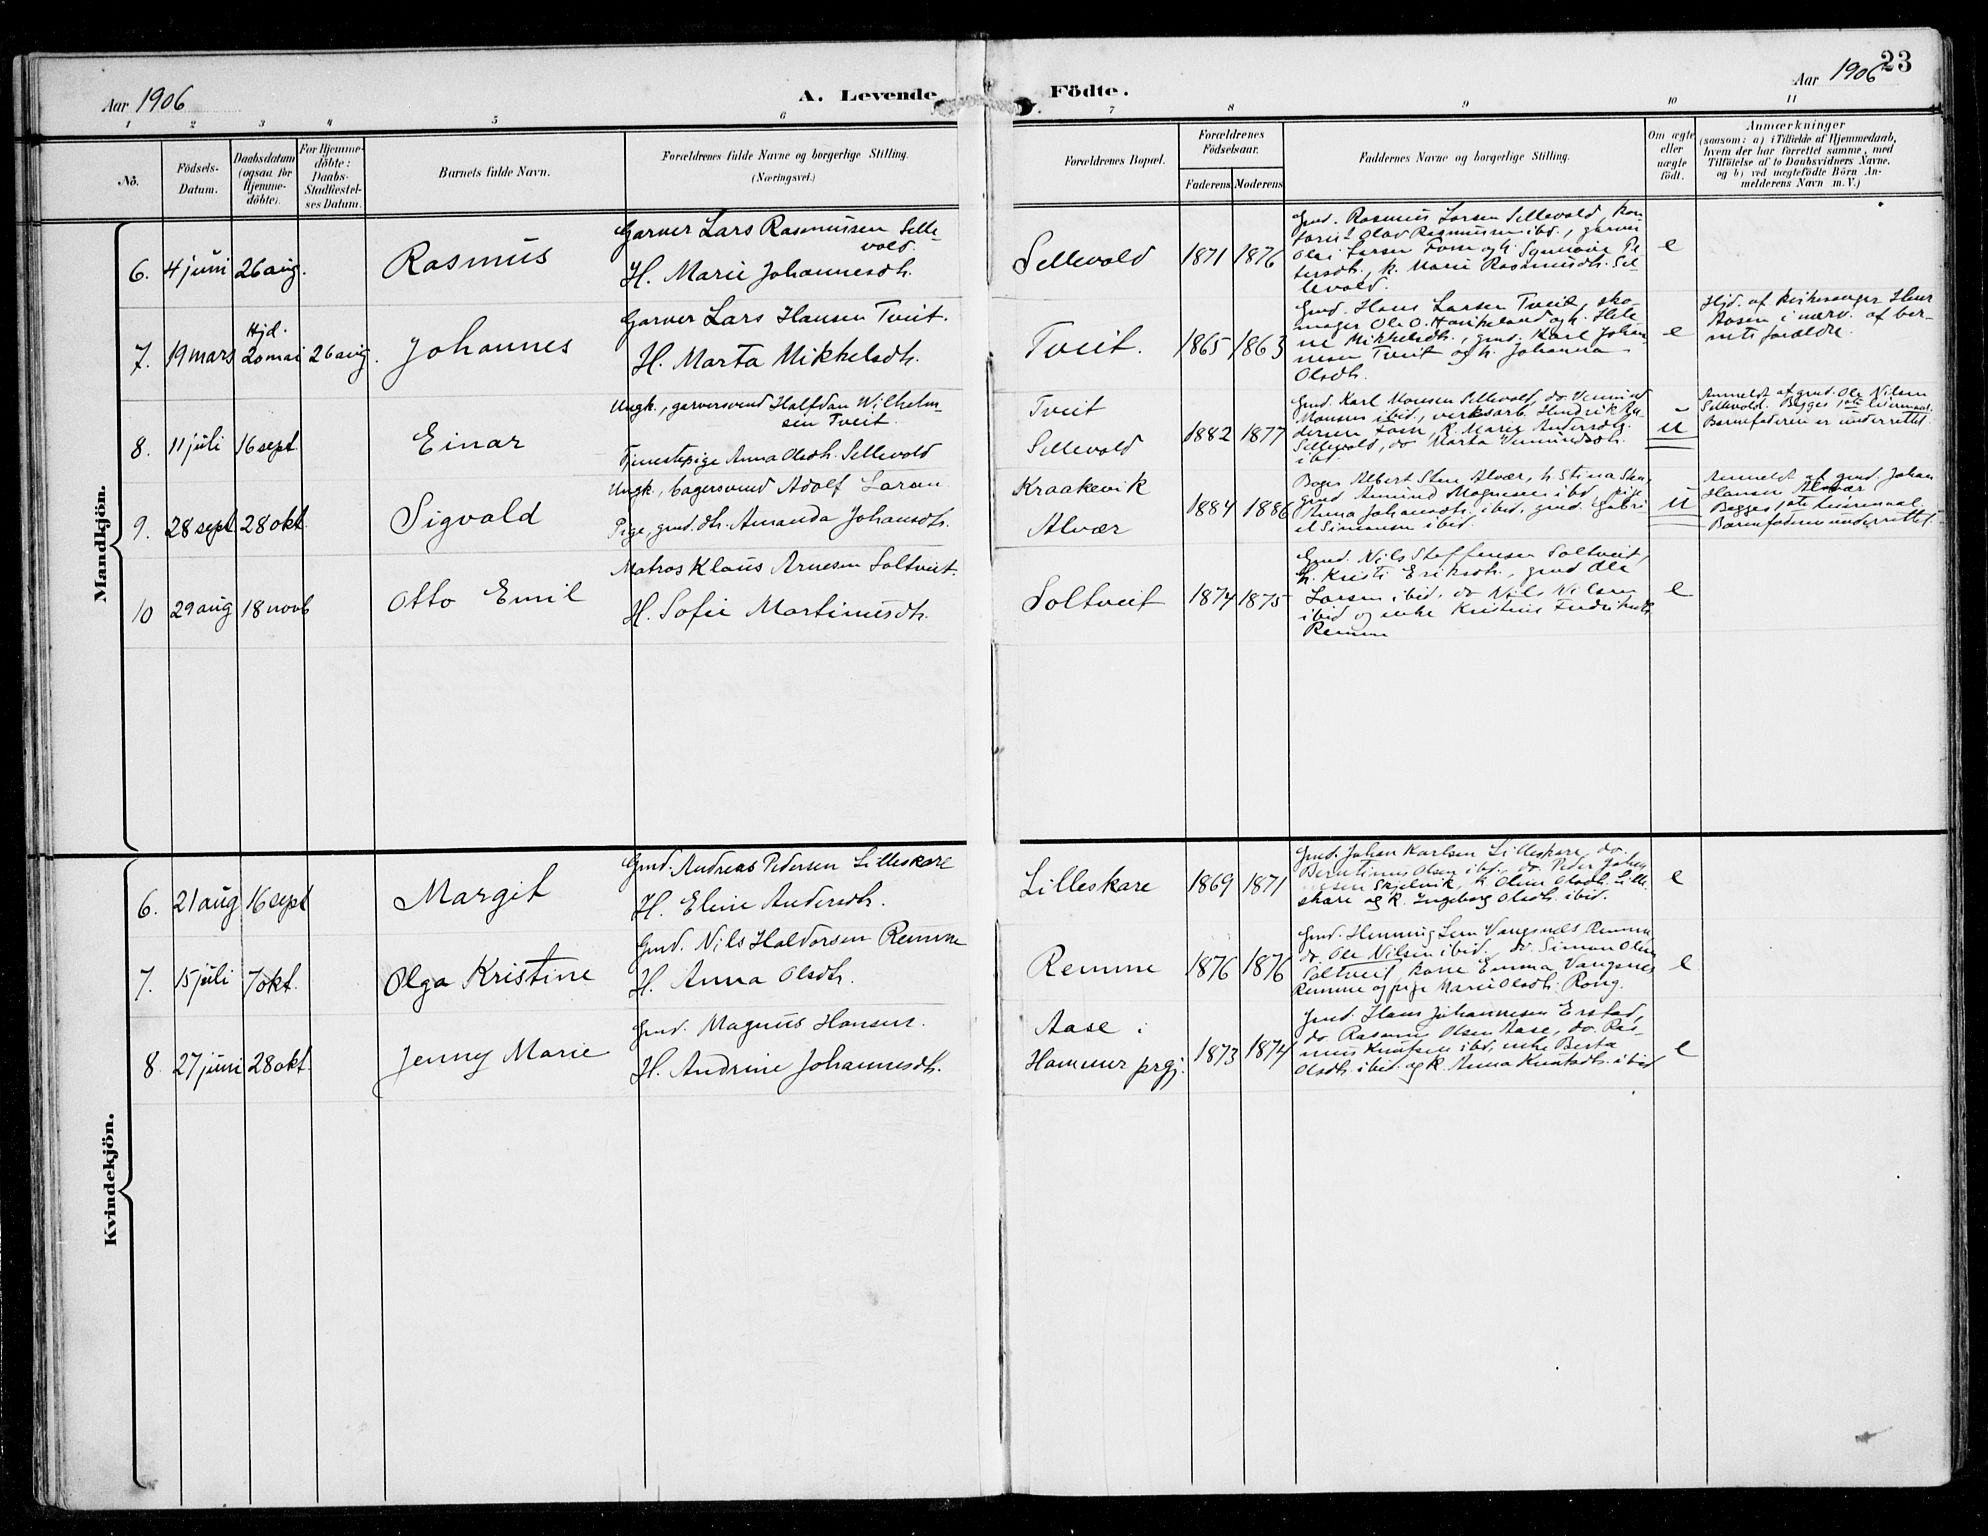 Aar 1906
A. Levende
Födte.
Aar 1906
23
1 2 3 4 5 6
7 8 9 10 11
No.
Födsels-
Datum.
Daabsdatum
(ogsaa for
Hjemme-
döbte).
For Hjemme-
döbte:
Daabs-
Stadfæstel-
ses Datum.
Barnets fulde Navn.
Forældrenes fulde Navne og borgerlige Stilling.
(Næringsvei.)
Forældrenes Bopæl.
Forældrenes
Födselsaar.
Faderens Moderens
Faddernes Navne og borgerlige Stilling.
Om ægte
eller
uægte
födt.
Anmærkninger
(saasom: a) i Tilfælde af Hjemmedaab,
hvem der har forrettet samme, med
Tilföielse af to Daabsvidners Navne,
og b) ved uægtefödte Börn An-
melderens Navn m. V.)
Mandkjön.
6. 4 juni 26 aug. Rasmus
Garver Lars Rasmussen Selle-
vold.
H. Marie Johannesdh.
Sellevold 1871 1876
Gmd. Rasmus Larsen Sellevold, kon-
torist Olav Rasmussen ibd., garver
Olai Larsen Tom og h. Synneve Pe-
tersdh., k. Marie Rasmusdh. Sel-
levold.
e
7. 19 mars Hjd. 20 mai 26 aug. Johannes
Garver Lars Hansen Tveit.
H. Marta Mikkelsdh.
Tveit. 1865 1863
Gmd. Hans Larsen Tveit, sko-
mager Ole O. Haukeland og h. Hele-
ne Mikkelsdh., gmd. Karl Johan-
nesen Tveit og h. Johanna
Olsdh.
e
Hjd. af kirkesanger
Rosen i nærv. af bar-
nets forældre.
8. 11 juli 16 sept. Einar
Ungk., garversvend Halfdan Wilhelm-
sen Tveit.
Tjenestepige Anna Olsdh. Sellevold
Tveit
Sellevold
1882 1877
Gmd Karl Monsen Sellevold, do Vemund
Monsen ibid, verksarb. Hendrik An-
dersen Tom, k. Marie Andersdh.
Sellevold, do Marta Vemundsdh.
ibd.
u
Anmeldt af gmd. Ole Nilsen
Sellevold. Begges 1ste leiermaal.
Barnefaderen er underrettet.
9. 28 sept 28 okt. Sigvald
Ungk., bagersvend Adolf Larsen
Pige, gmd. dh. Amanda Johansdh.
Kraakevik
Alvær
1884 1886
Bager Albert Sten Alvær, h Stina Sten
gmd Amund Magnesen ibd, pige
Anna Johansdh. ibid. gmd. Gabri
el Simonsen ibid.
u
Anmeldt af gmd. Johan
Hansen Alvær.
Begges 1ste leiermaal
Barnefaderen underrettet.
10 29 aug 18 novb Otto Emil
Matros Klaus Arnesen Soltveit.
H. Sofie Martinusdh.
Soltveit 1874 1875
Gmd. Nils Steffensen Soltveit,
h. Kristi Eriksdh., gmd Ole
Larsen ibid. do Nils Nilsen
ibid og enke Kristine Fredriksdh.
Remme
e
Kvindekjön.
6. 21 aug 16 sept Margit
Gmd. Andreas Pedersen Lilleskare
H. Eline Andersdh.
Lilleskare 1869 1871
Gmd. Johan Karlsen Lilleskare, do.
Berntinus Olsen ibd., do. Peder Johan
nesen Skjelvik, k. Oline Olsdh. Lille
skare og k. Ingeborg Olsdh. ibid.
e
7. 15 juli 7 okt. Olga Kristine
Gmd. Nils Haldorsen Remme
H. Anna Olsdh.
Remme 1876 1876
Gmd. Henning Lem Vangsnes Remme
do. Ole Nilsen ibid., do. Simon Olsen
Soltveit, kone Emma Vangsnes
Remme og pige Marie Olsdh. Rong.
e
8. 27 juni 28 okt. Jenny Marie
Gmd. Magnus Hansen.
H. Andrine Johannesdh.
Aase i
Hammer prgj.
1873 1874
Gmd. Hans Johannesen Erstad,
do Rasmus Olsen Aase, do. Ras-
mus Knutsen ibd., enke Berta
Olsdh. ibid. og k. Anna Knutsdh. ibid
e